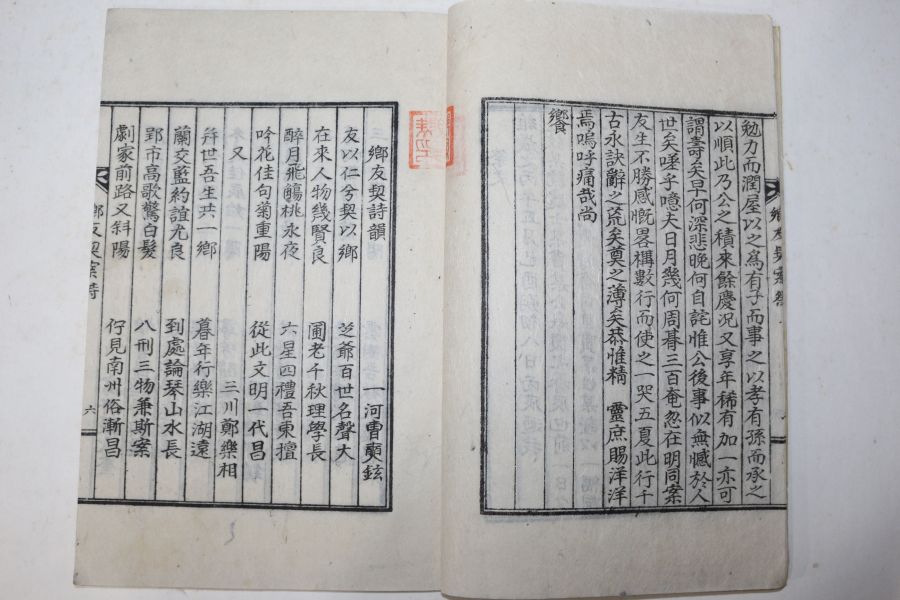 勉力而潤屋以之爲有子而事之以孝有孫而承之
以順此乃公之積來餘慶況又享年稀有加一亦可
謂壽矣早何深悲晩何自詫惟公後事似無憾於人
世矣嗟乎噫夫日月幾何周朞三百奄忽在明同案
友生不勝感慨畧構數行而使之一哭五夏此行千
古永訣辭之荒矣奠之薄矣恭惟精 靈庶賜洋洋
焉嗚呼痛哉尚
饗
鄕友契案
鄕友契詩韻
一河曺奭鉉
友以仁兮契以鄕 芝爺百世名聲大
在來人物幾賢良 圃老千秋理學長
醉月飛觴桃永夜 六星四禮吾東擅
吟花佳句菊重陽 從此文明一代昌
又 三川鄭樂相
幷世吾生共一鄕 暮年行樂江湖遠
蘭交藍約誼尤良 到處論琴山水長
郢市高歌驚白髮 八刑三物兼斯案
劇家前路又斜陽 佇見南州俗漸昌
鄕友契案詩 六